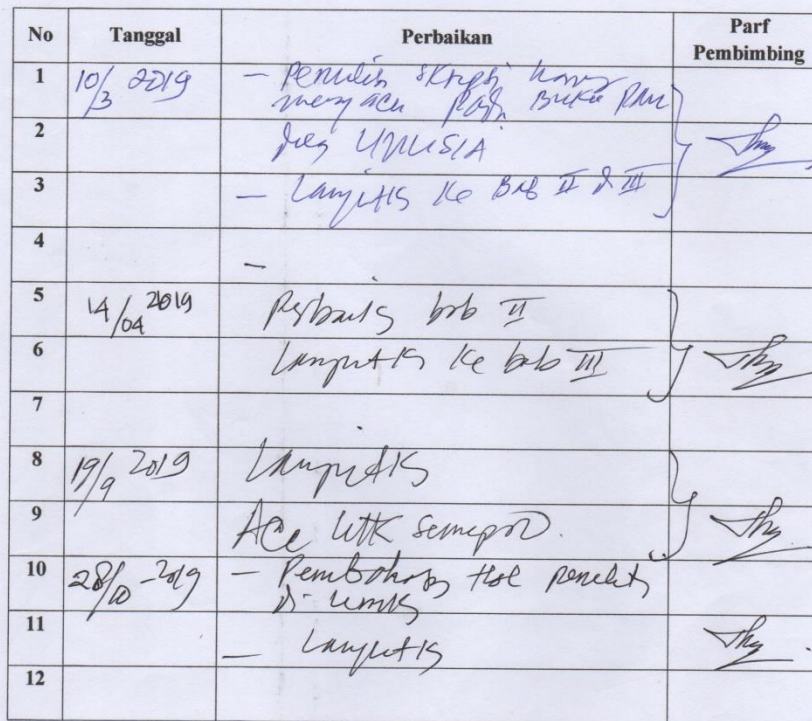 No Tanggal Perbaikan Parf Pembimbing
1 10/3 2019 - Penulisan skripsi harus
mengacu pada Buku
2 UNUSIA
3 - Lanjutkan ke Bab II & III
4 -
5 14/04 2019 Perbaiki bab II
6 Lanjutkan ke bab III
7
8 19/9 2019 Lanjutkan
9 Acc utk Sempro
10 28/10-2019 - Pembahasan Hsl
di
11 - Lanjutkan
12